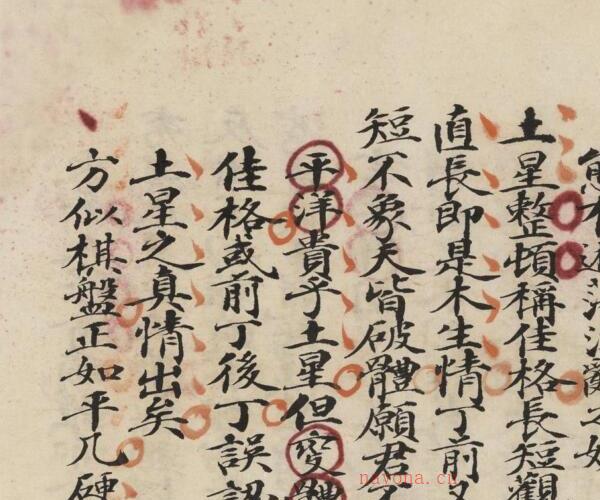 土星整頓稱佳格長短觀
直長即是木生情丁前
短不象天皆破體願君
平洋貴乎土星但變體
佳格或前丁後丁誤認
土星之真情出矣
方似棋盤正如平几硨
nayona.cn